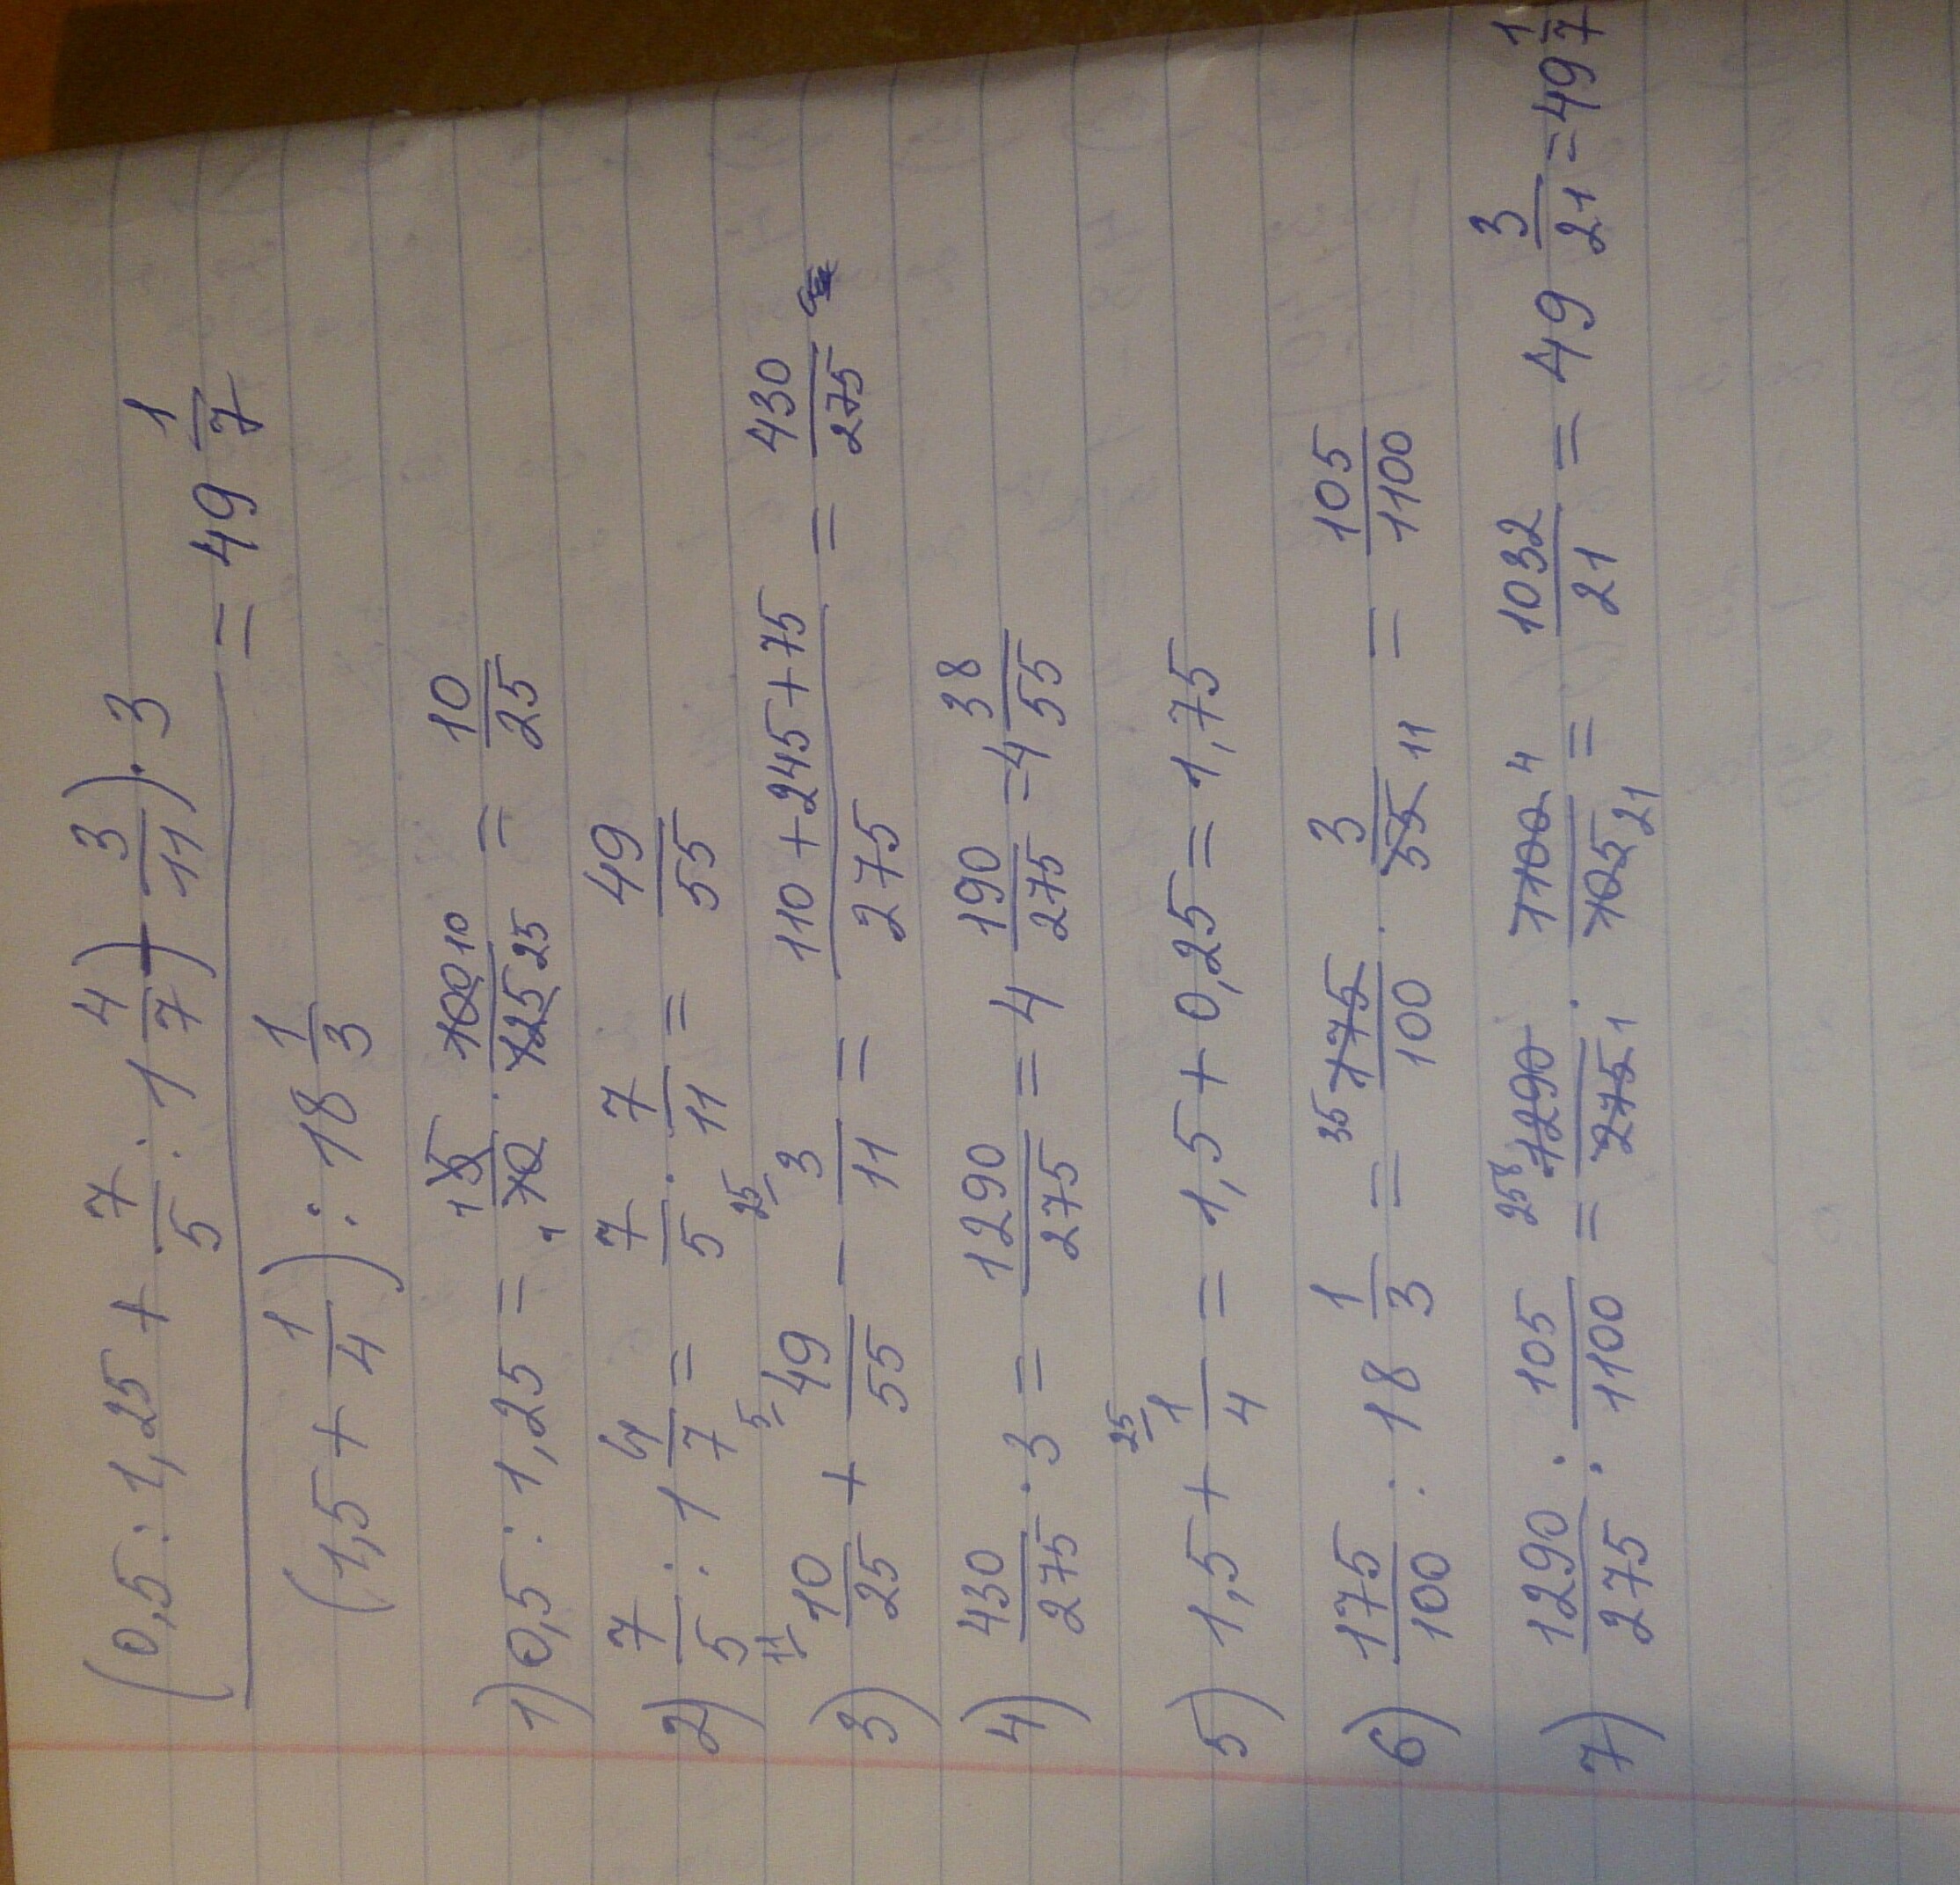 (0,5 : 1,25 + 7/5 : 1 4/7) - 3/11) · 3
(1,5 + 1/4) : 18 1/3 = 49 1/7
1) 0,5 : 1,25 = 1 5/10 1 · 100 10/125 25 = 10/25
2) 7/5 : 1 4/7 = 7/5 · 7/11 = 49/55
3) 11 10/25 + 5 49/55 - 25 3/11 = 110 + 245 + 75/275 = 430/275
4) 430/275 · 3 = 1290/275 = 4 190/275 = 4 38/55
5) 1,5 + 25 1/4 = 1,5 + 0,25 = 1,75
6) 175/100 : 18 1/3 = 35 175/100 · 3/55 11 = 105/1100
7) 1290/275 : 105/1100 = 258 1290/275 1 · 1100 4/105 21 = 1032/21 = 49 3/21 = 49 1/7